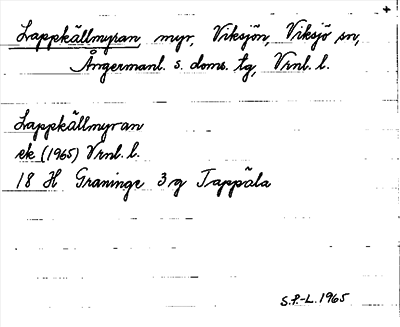 Lappkällmyran myr, Viksjön, Viksjö sn,
Ångermanl. s. doms. tg, Vrnl. l.
Lappkällmyran
ek (1965) Vrnl. l.
18 H Graninge 3 g Tappäla
S.P.-L. 1965